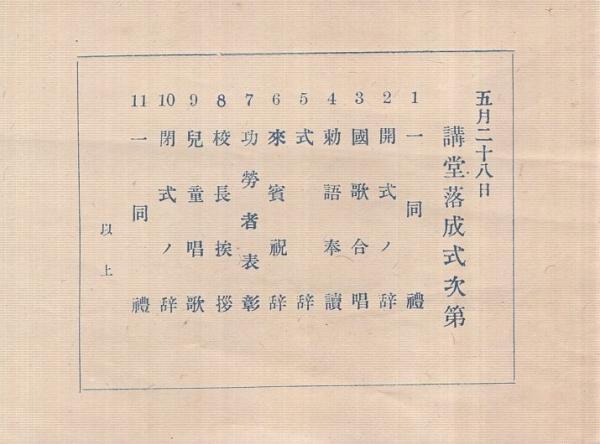 五月二十八日
講堂落成式次第
1 一同禮
2 開式ノ辞
3 國歌合唱
4 勅語奉讀
5 式辞
6 來賓祝辞
7 功勞者表彰
8 校長挨拶
9 兒童唱歌
10 閉式ノ辞
11 一同禮
以上